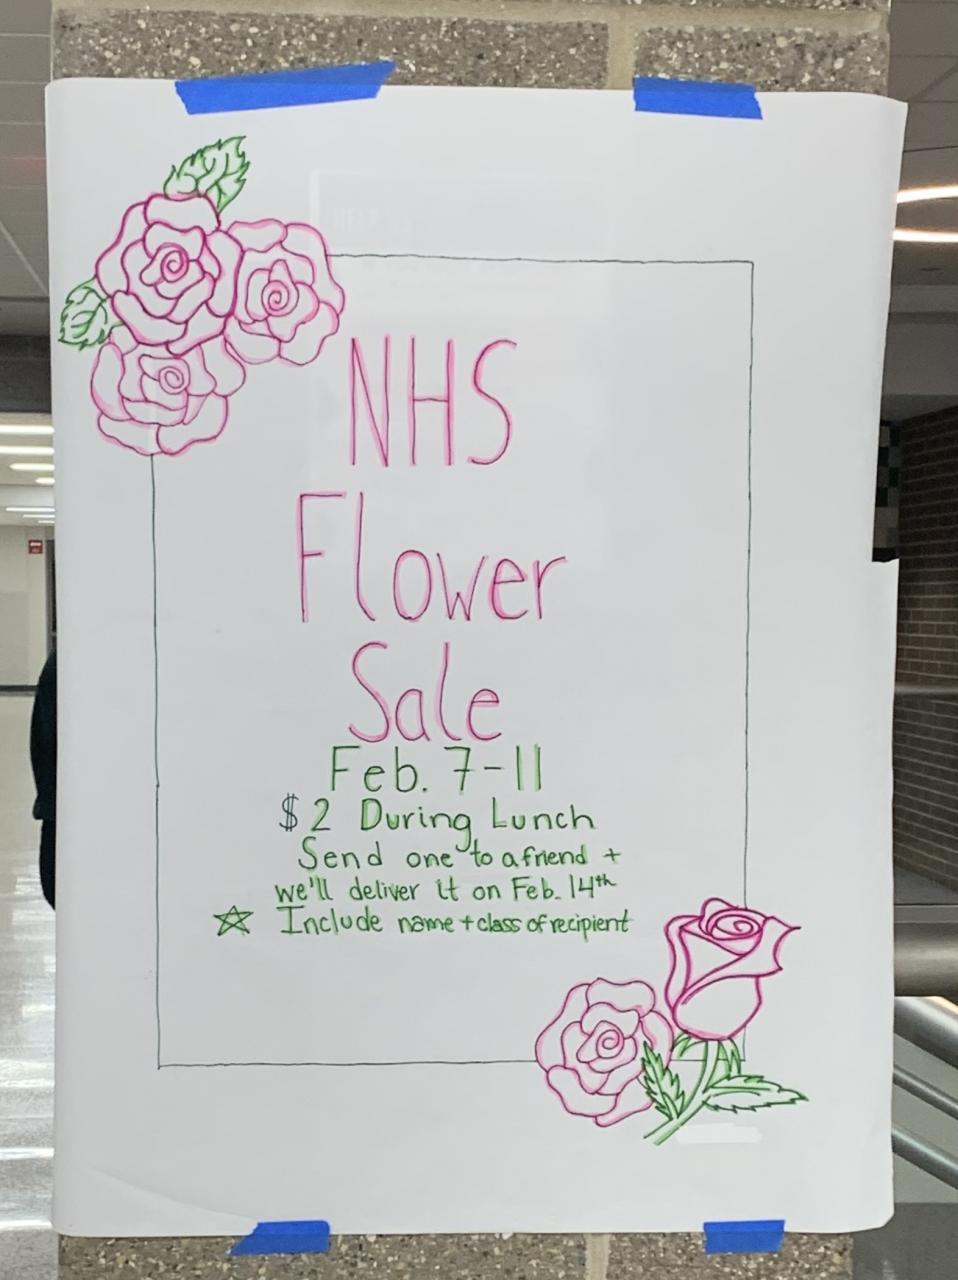 NHS
Flower
Sale
Feb. 7-11
$2 During Lunch
Send one to a friend +
we'll deliver it on Feb. 14th
☆ Include name + class of recipient